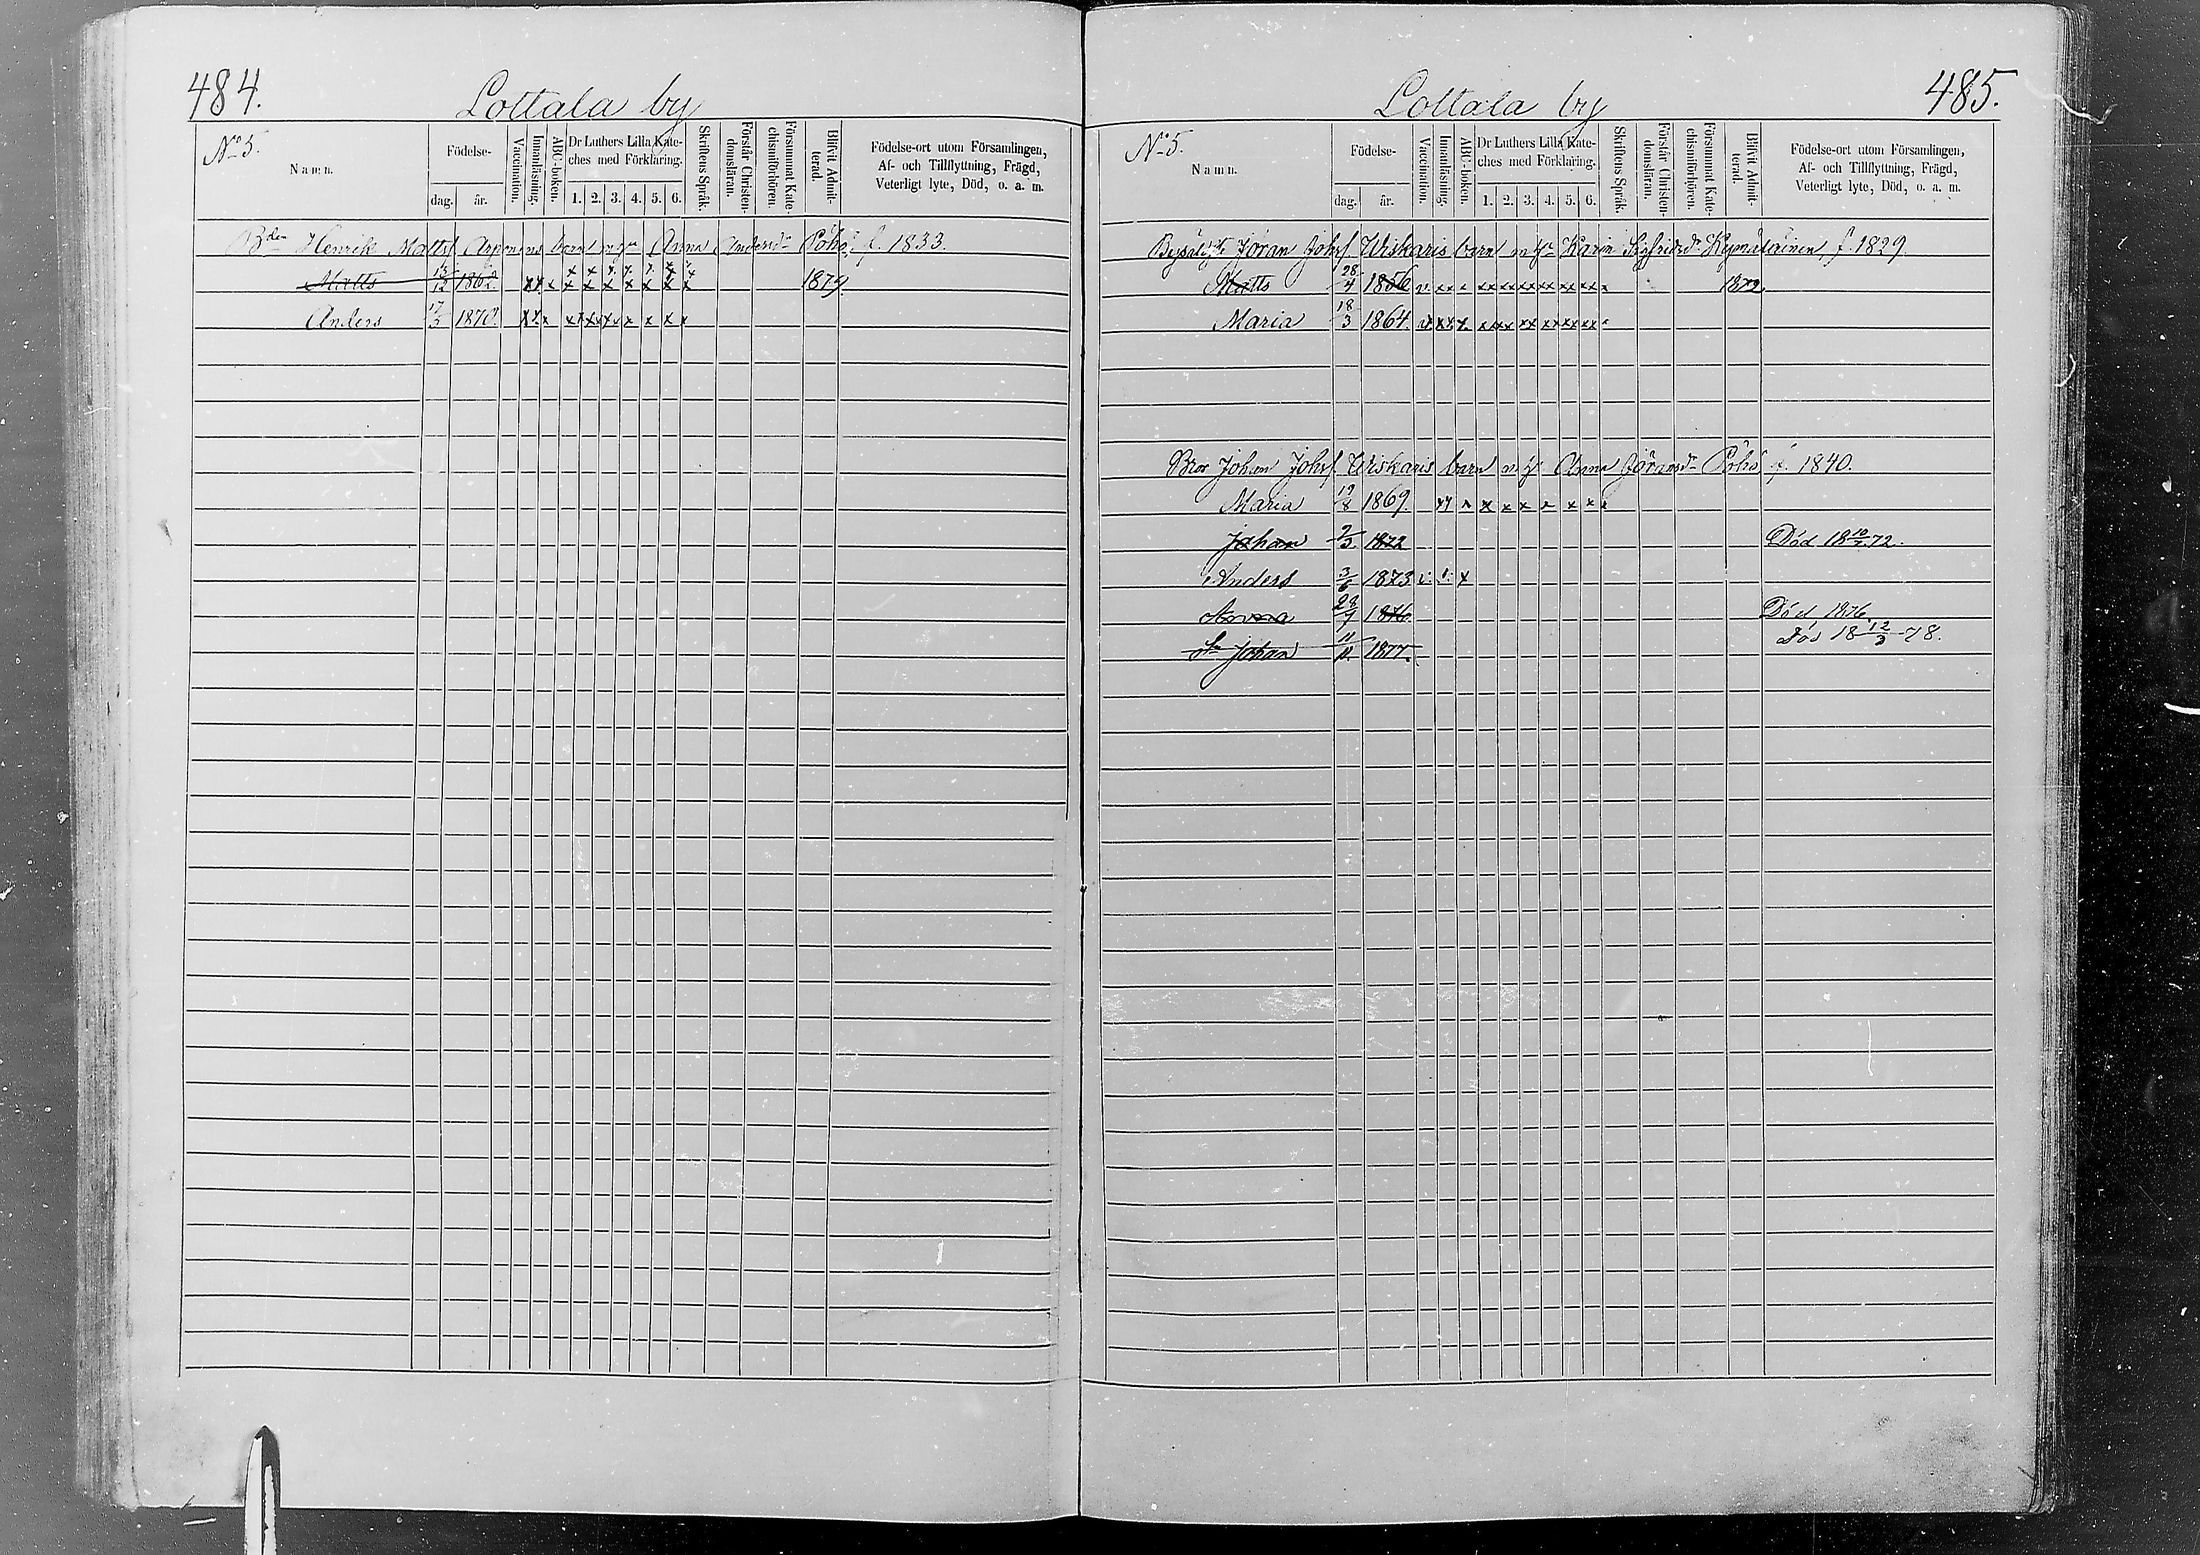 484.
Lottala by
No 5.
Namn.
Födelse-
dag. år.
Vaccination.
Innanläsning.
ABC-boken.
Dr Luthers Lilla Kate-
ches med Förklaring.
1. 2. 3. 4. 5. 6.
Skriftens Språk.
Förstår Christen-
domsläran.
Försummat Kate-
chismiförhören.
Blifvit Admit-
terad.
Födelse-ort utom Församlingen,
Af- och Tillflyttning, Frägd,
Veterligt lyte, Död, o. a. m.
Bden Henrik Matts Arponens barn m Anna Andersdr Pöhö f. 1833.
Matts 13/12 1862. xx x x x x x x x x 1879.
Anders 17/3 1870. xx x xx xx xx x x x x
Lottala by
485.
No 5.
Namn.
Födelse-
dag. år.
Vaccination.
Innanläsning.
ABC-boken.
Dr Luthers Lilla Kate-
ches med Förklaring.
1. 2. 3. 4. 5. 6.
Skriftens Språk.
Förstår Christen-
domsläran.
Försummat Kate-
chismiförhören.
Blifvit Admit-
terad.
Födelse-ort utom Församlingen,
Af- och Tillflyttning, Frägd,
Veterligt lyte, Död, o. a. m.
Jöran Johs Wiskaris barn m Karin Sigfridsdr f. 1829.
Matts 28/4 1856 v. xx x xx xx xx xx xx xx x 1872
Maria 18/3 1864. v. xx x xx xx xx xx xx xx x
Bror Johan Johs Wiskaris barn m Anna Jöransdr Pöhö f. 1840.
Maria 19/8 1869. xx x x x x x x x x
Johan 2/3 1872 Död 18 10/7 72.
Anders 3/6 1873 v. v. x
Anna 1876 Död 1876.
Johan 11/11 1877. Död 18 12/3 78.